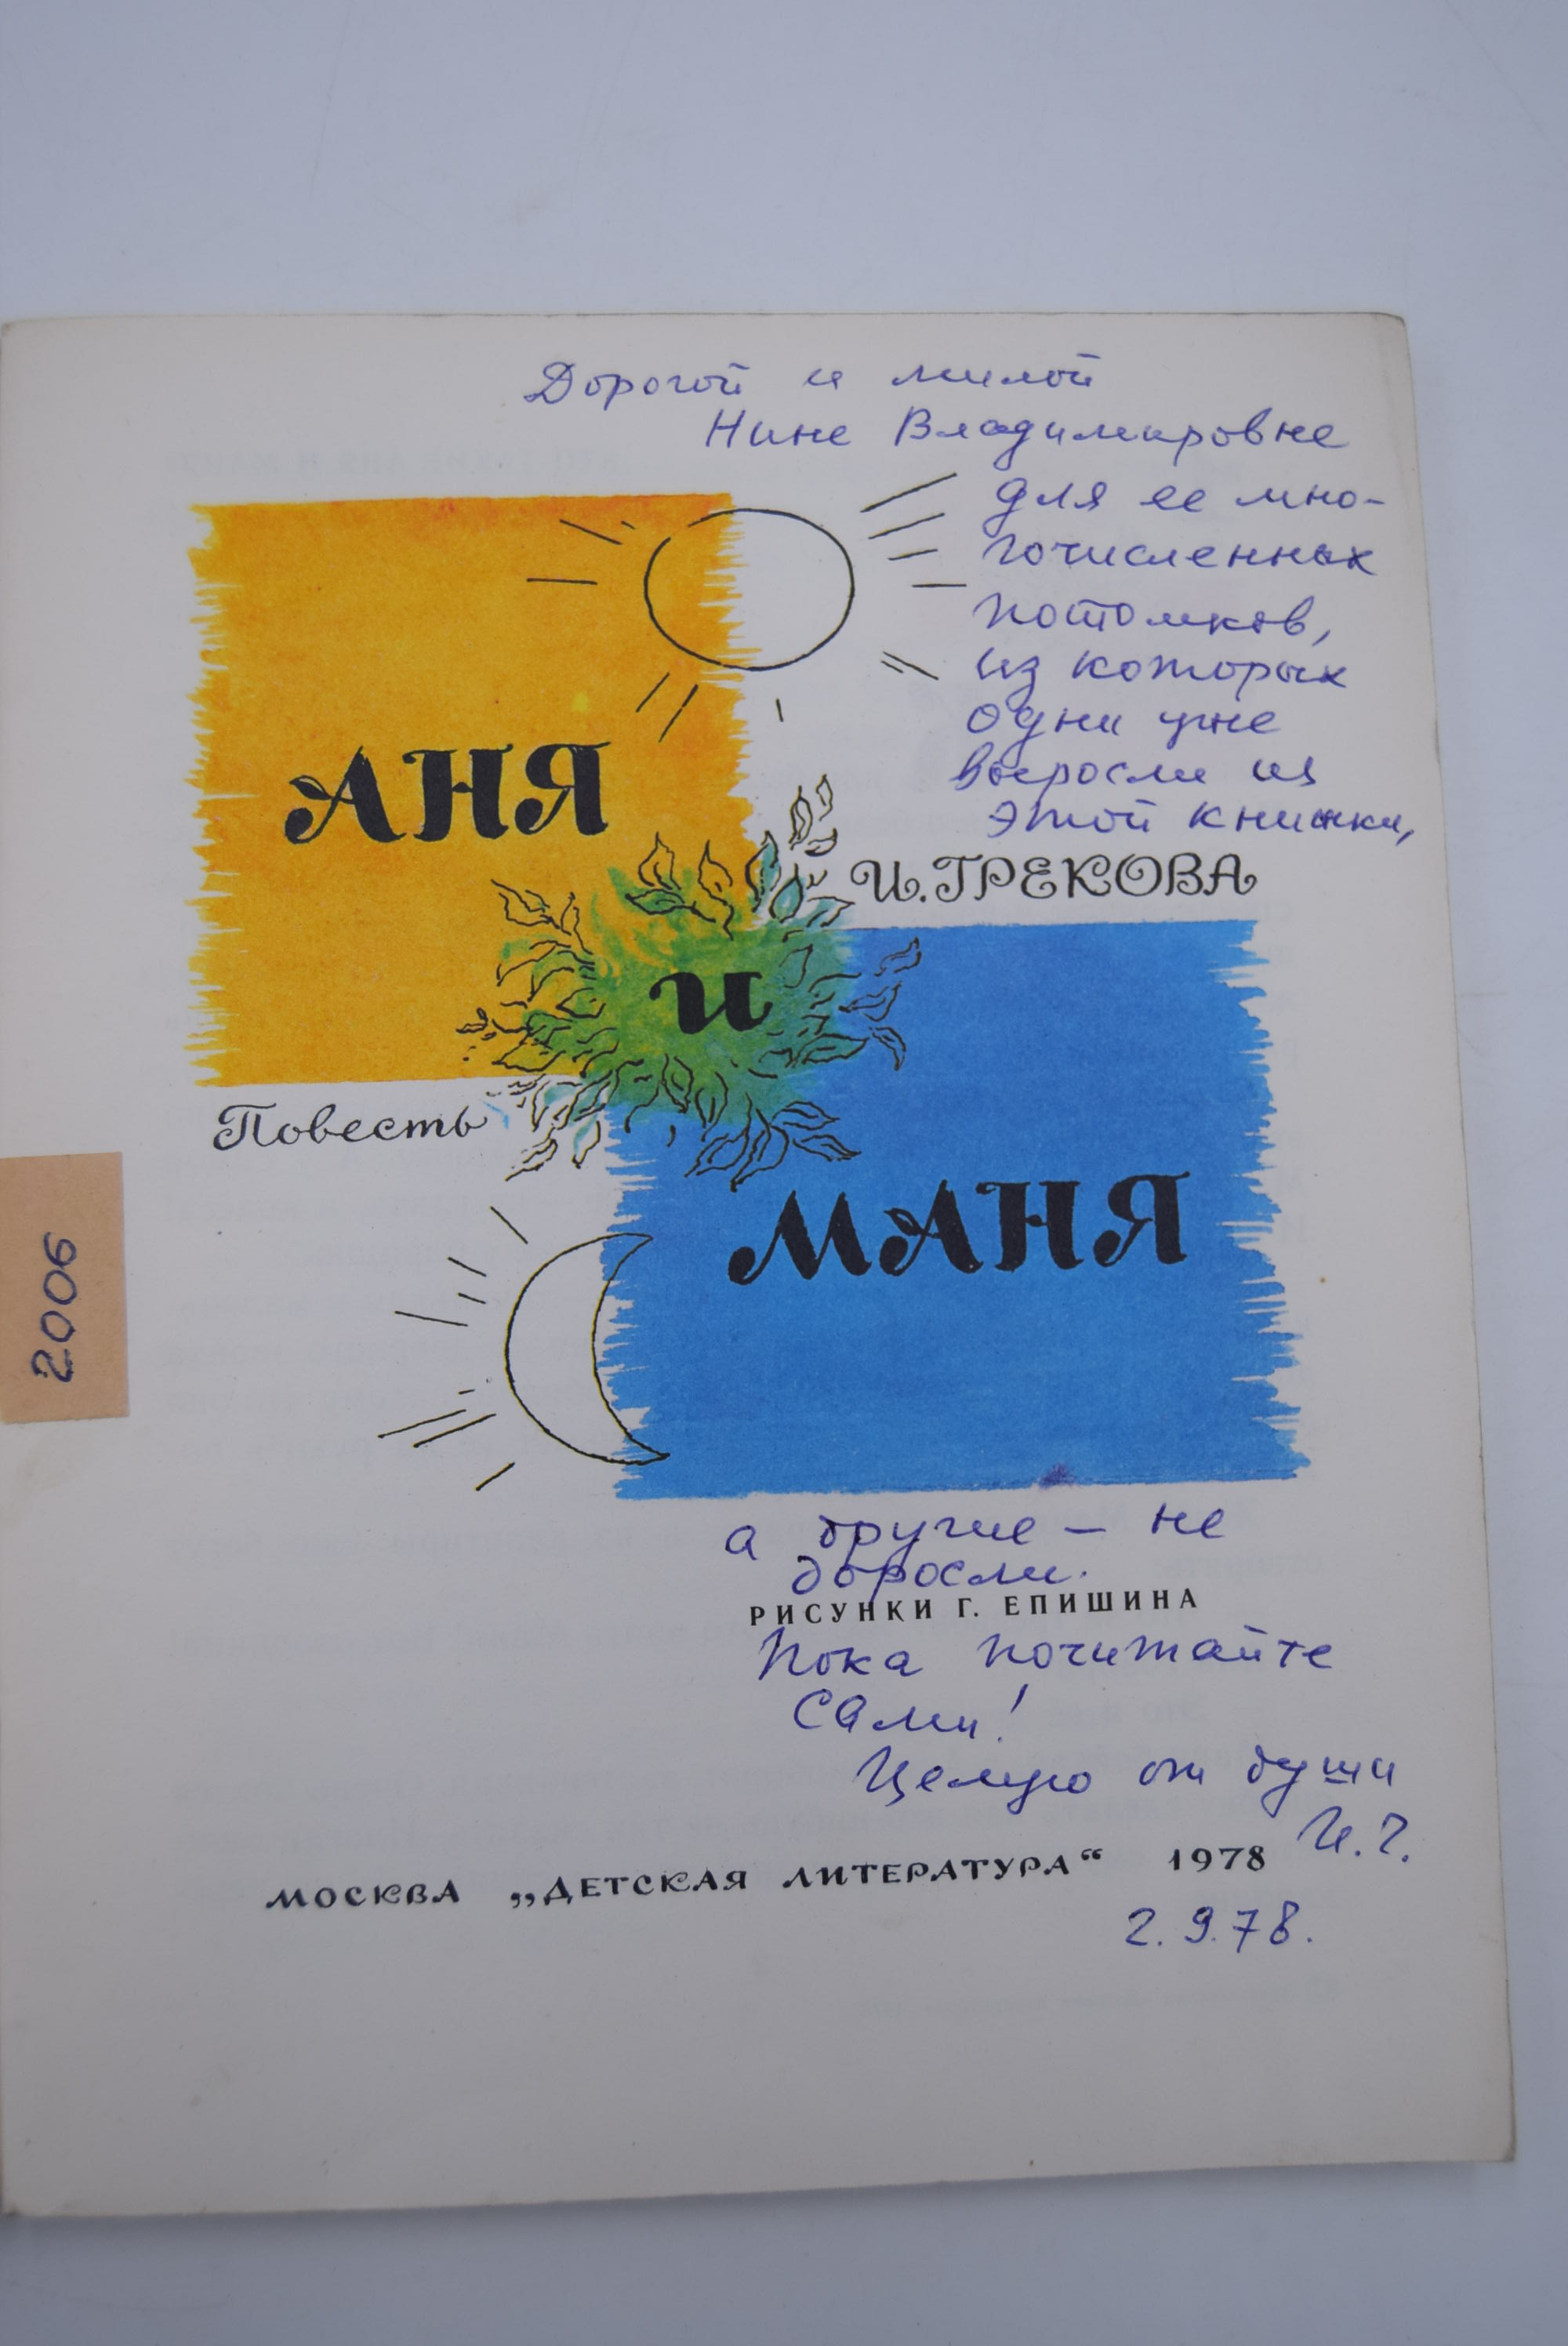 Дорогой и милой
Нине Владимировне
для ее мно-
гочисленных
потомков,
из которых
одни уже
выросли из
этой книжки,
АНЯ
И. ГРЕКОВА
и
Повесть
МАНЯ
2006
а другие — не
доросли.
РИСУНКИ Г. ЕПИШИНА
Пока почитайте
сами!
Целую от души
И. Г.
МОСКВА „ДЕТСКАЯ ЛИТЕРАТУРА“ 1978
2. 9. 78.